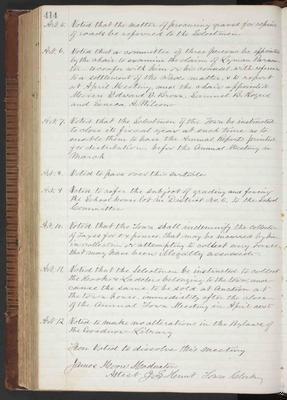 414
Art. 5. Voted that the matter of procuring gravel for repairs
of roads be referred to the Selectmen
Art. 6. Voted that a committee of three persons be appointed
by the chair to examine the claim of Lyman
to confer with him or his counsel with reference
to a settlement of the above matter, & to report
at April Meeting, and the chair appointed
Messrs Edward D. Bean, Samuel R. Rogers
and Seneca A. Wilson
Art. 7. Voted that the Selectmen of the Town be instructed
to close its fiscal year at such time as to
enable them to have the Annual Reports printed
for distribution before the Annual Meeting in
March
Art. 8. Voted to pass over this article
Art. 9 Voted to refer the subject of grading and fencing
the School house lot in District No. 2 to the School
Committee
Art. 10. Voted that the Town shall indemnify the collector
of Taxes for expenses that may be incurred by him
in collection or attempting to collect any taxes
that may have been illegally assessed
Art. 11. Voted that the Selectmen be instructed to collect
the Hooks & Ladders belonging to the town, and
cause the same to be sold at Auction at
the town house immediately after the close
of the Annual Town Meeting in April next
Art. 12 Voted to make no alterations in the Bylaws of
the Library
Then Voted to dissolve this meeting
James Moderator
Attest Town Clerk